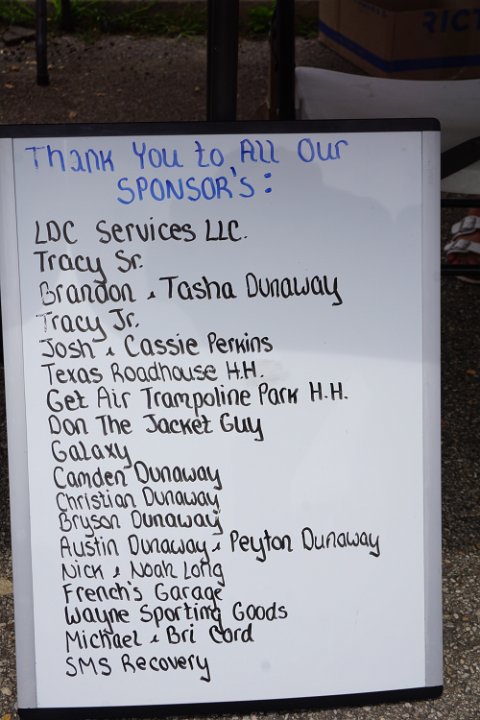 RICT
Thank You to All Our
SPONSOR'S:
LDC Services LLC.
Tracy Sr.
Brandon & Tasha Dunaway
Tracy Jr.
Josh & Cassie Perkins
Texas Roadhouse H.H.
Get Air Trampoline Park H.H.
Don The Jacket Guy
Galaxy
Camden Dunaway
Christian Dunaway
Bryson Dunaway
Austin Dunaway & Peyton Dunaway
Nick & Noah Long
French's Garage
Wayne Sporting Goods
Michael & Bri Cord
SMS Recovery